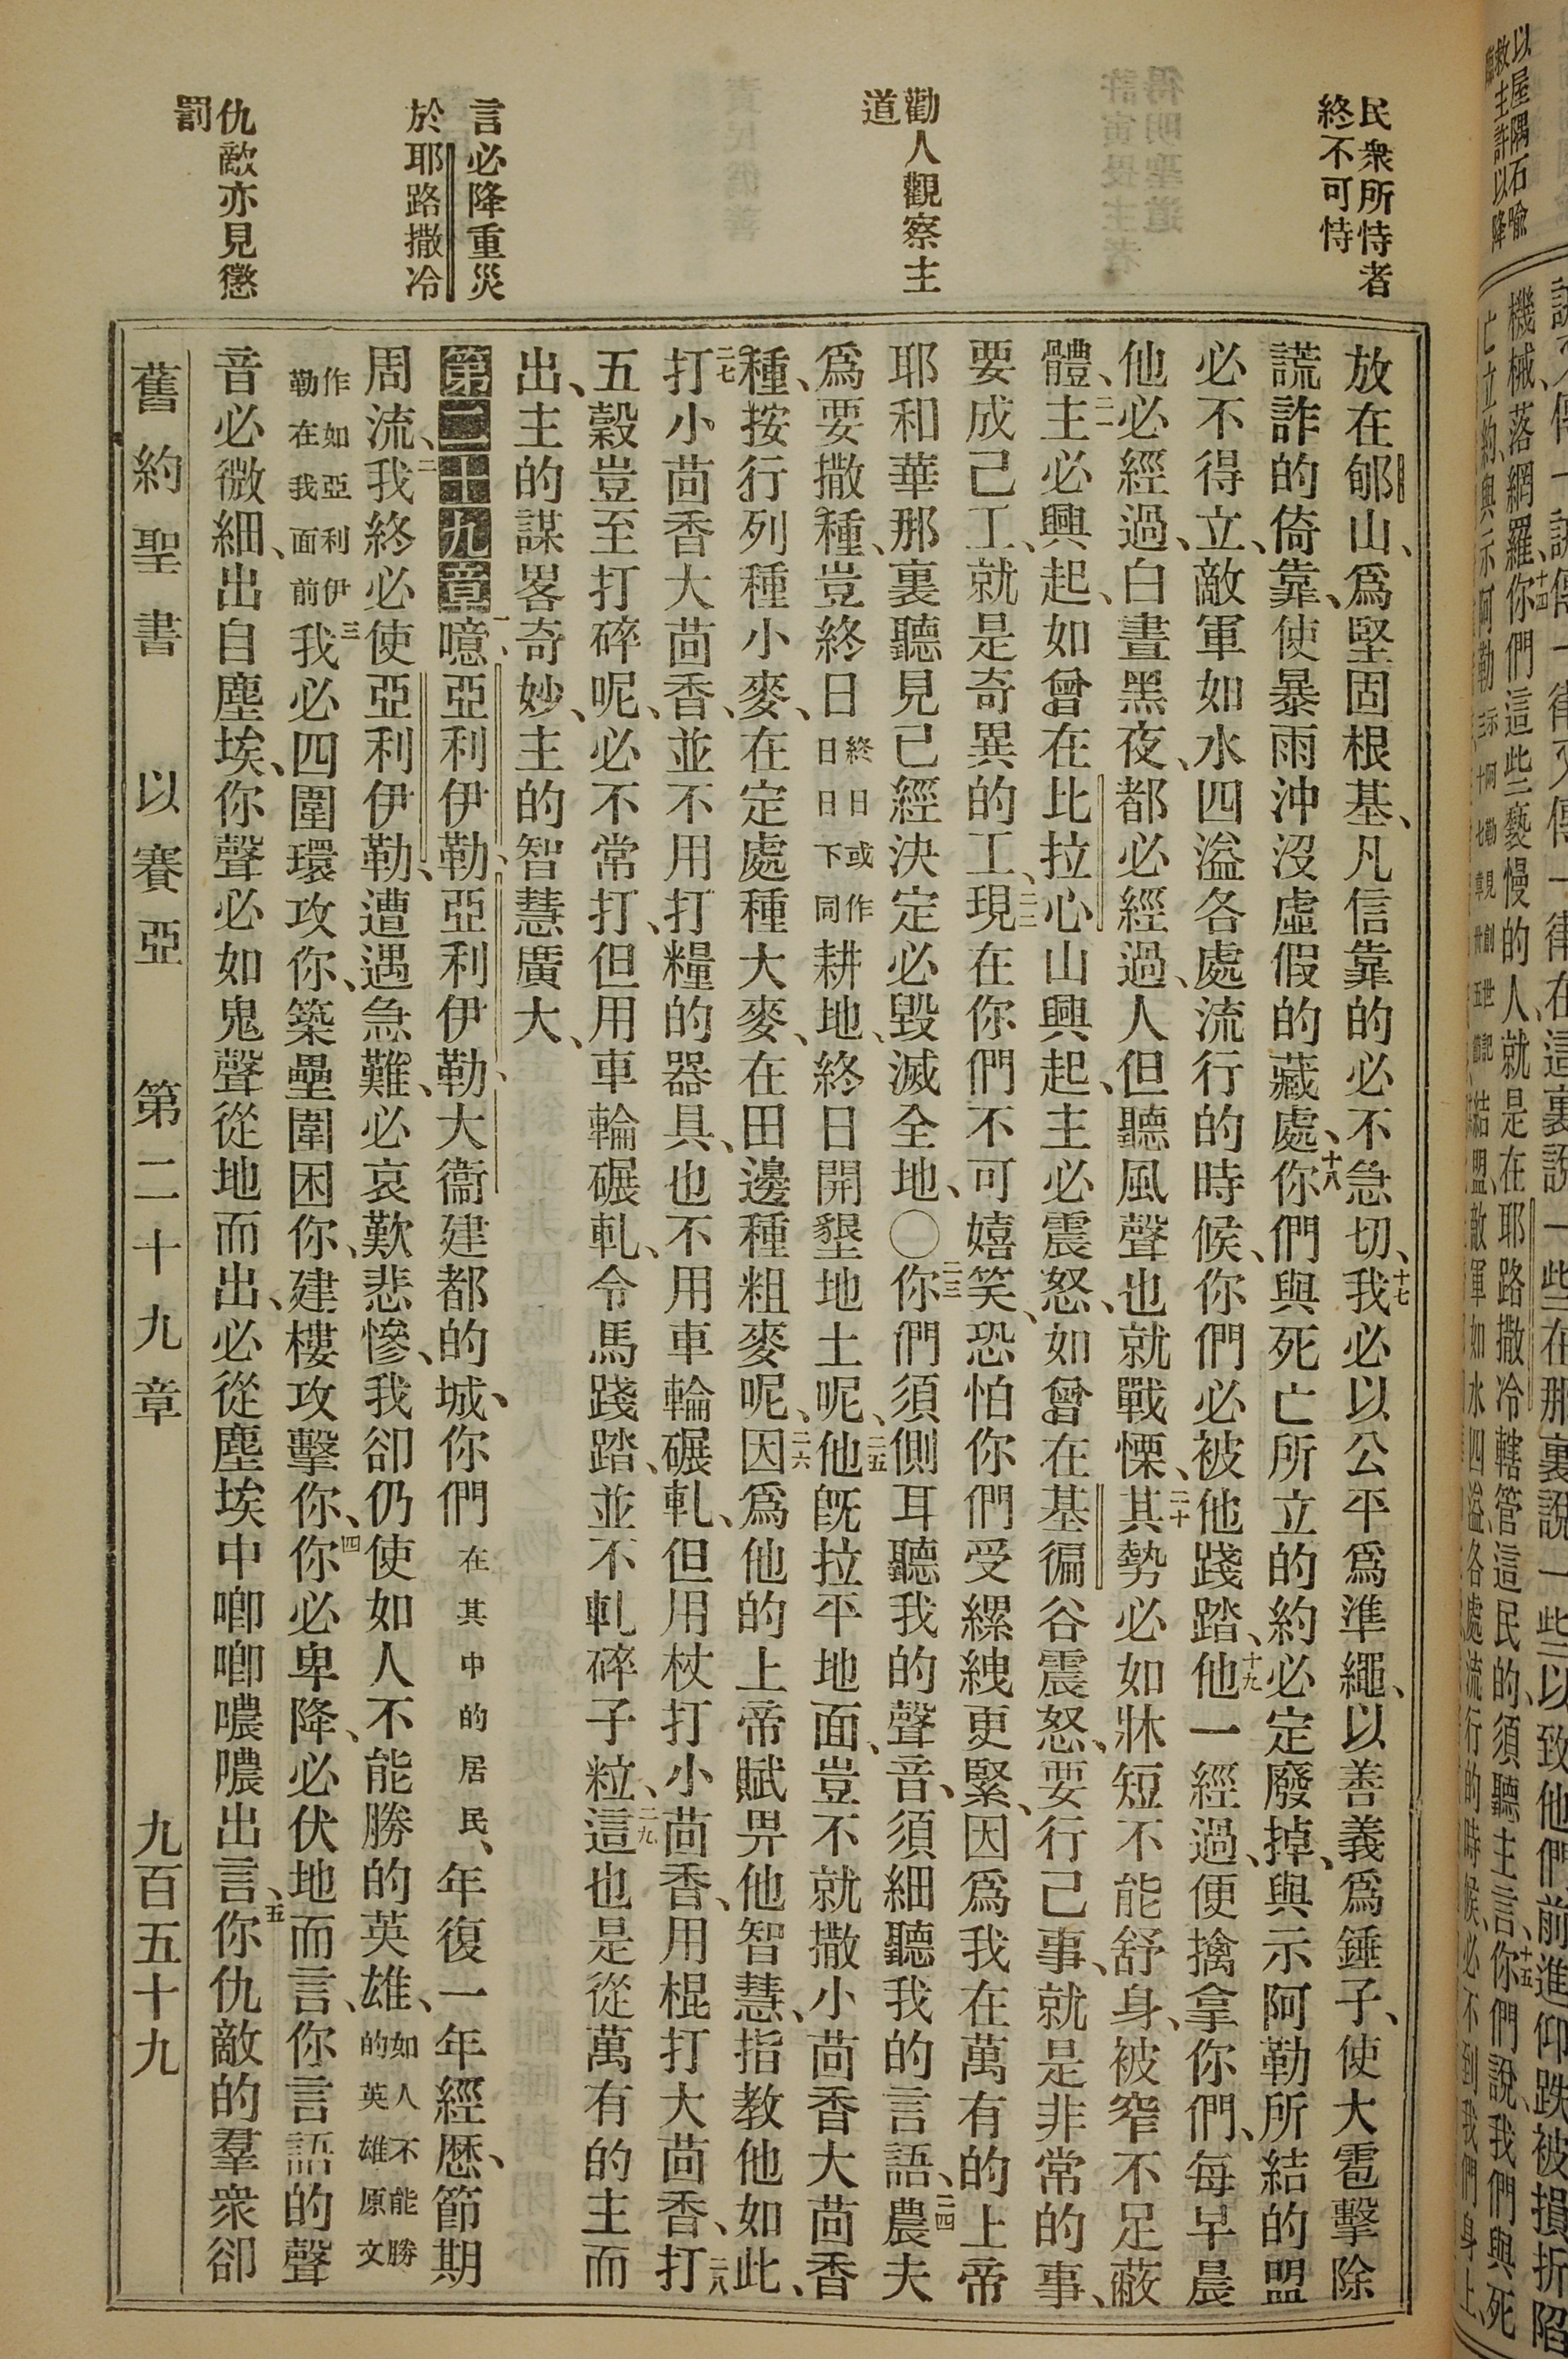 民衆所恃者
終不可恃
勸人觀察主
道
言必降重災
於耶路撒冷
仇敵亦見懲
罰
放在郇山、爲堅固根基、凡信靠的必不急切、十七我必以公平爲準繩、以善義爲錘子、使大雹擊除
謊詐的倚靠、使暴雨沖沒虛假的藏處、十八你們與死亡所立的約必定廢掉、與示阿勒所結的盟
必不得立、敵軍如水四溢各處流行的時候、你們必被他踐踏、十九他一經過、便擒拿你們、每早晨
他必經過、白晝黑夜、都必經過、人但聽風聲也就戰慄、二十其勢必如牀短不能舒身、被窄不足蔽
體、二一主必興起、如曾在比拉心山興起、主必震怒、如曾在基徧谷震怒、要行己事、就是非常的事、
要成己工、就是奇異的工、二二現在你們不可嬉笑、恐怕你們受縲絏更緊、因爲我在萬有的上帝
耶和華那裏聽見已經決定必毀滅全地、〇二三你們須側耳聽我的聲音、須細聽我的言語、二四農夫
爲要撒種、豈終日終日或作日日下同耕地、終日開墾地土呢、二五他旣拉平地面、豈不就撒小茴香大茴香
種、按行列種小麥、在定處種大麥、在田邊種粗麥呢、二六因爲他的上帝賦畀他智慧、指教他如此、
二七打小茴香大茴香、並不用打糧的器具、也不用車輪碾軋、但用杖打小茴香、用棍打大茴香、二八打
五穀豈至打碎呢、必不常打、但用車輪碾軋、令馬踐踏、並不軋碎子粒、二九這也是從萬有的主而
出、主的謀畧奇妙、主的智慧廣大、
第二十九章一噫、亞利伊勒、亞利伊勒、大衞建都的城、你們在其中的居民、年復一年經歷、節期
周流、二我終必使亞利伊勒、遭遇急難、必哀歎悲慘、我卻仍使如人不能勝的英雄、如人不能勝的英雄原文
作如亞利伊勒在我面前三我必四圍環攻你、築壘圍困你、建樓攻擊你、四你必卑降、必伏地而言、你言語的聲
音必微細、出自塵埃、你聲必如鬼聲從地而出、必從塵埃中唧唧噥噥出言、五你仇敵的羣衆卻
舊約聖書 以賽亞 第二十九章 九百五十九
以屋隅石喻
救主許以降
機械、落網羅、十四你們這些褻慢的人、就是在耶路撒冷轄管這民的、須聽主言、十五你們說、我們與死